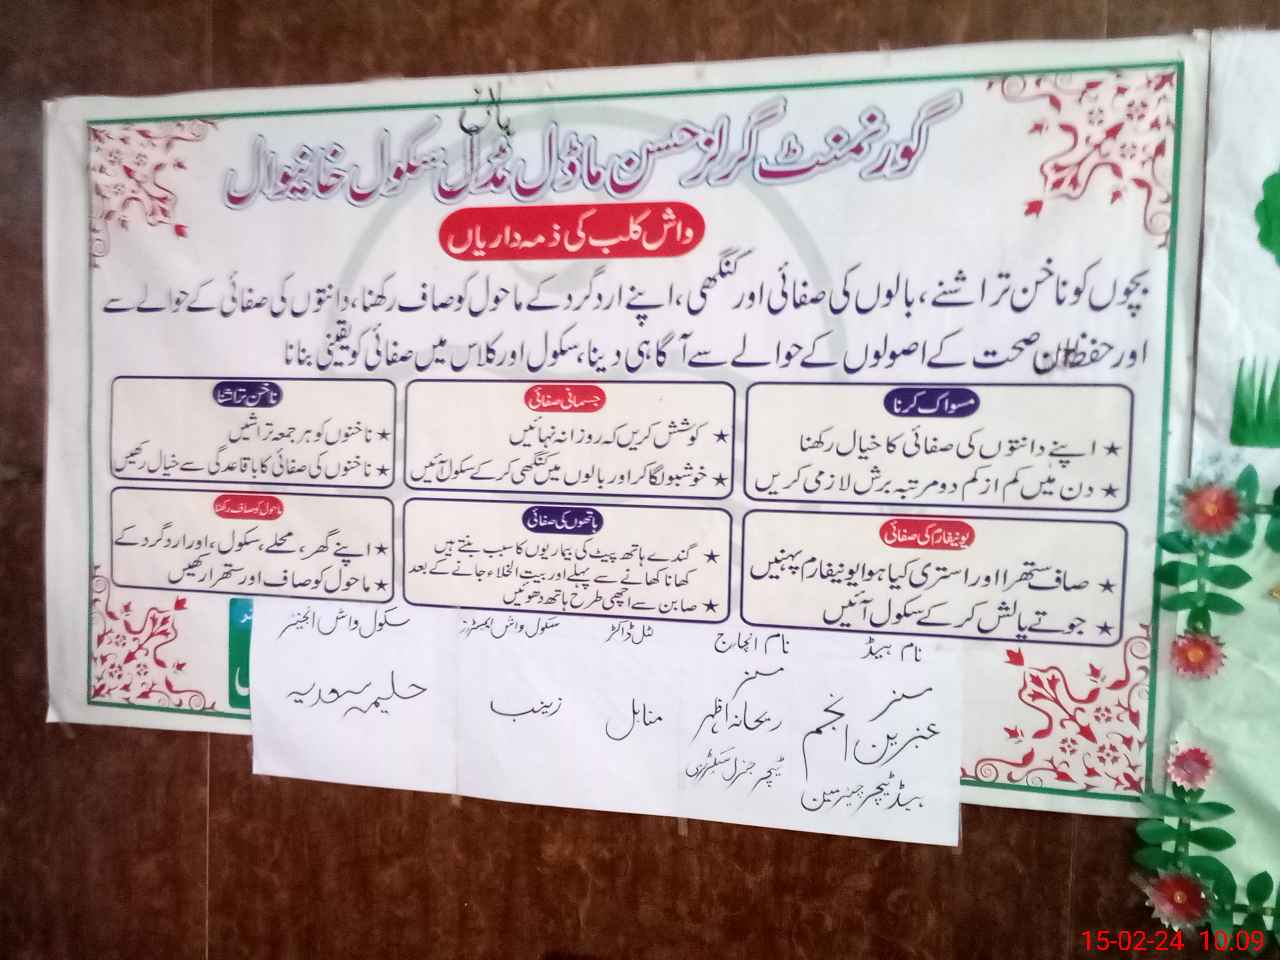 ہائی
گورنمنٹ گرلز حسن ماڈل مڈل سکول خانیوال
واش کلب کی ذمہ داریاں
بچوں کو ناخن تراشنے، بالوں کی صفائی اور کنگھی، اپنے اردگرد کے ماحول کو صاف رکھنا، دانتوں کی صفائی کے حوالے سے
اور حفظان صحت کے اصولوں کے حوالے سے آگاہی دینا، سکول اور کلاس میں صفائی کو یقینی بنانا
مسواک کرنا
★ اپنے دانتوں کی صفائی کا خیال رکھنا
★ دن میں کم از کم دو مرتبہ برش لازمی کریں
جسمانی صفائی
★ کوشش کریں کہ روزانہ نہائیں
★ خوشبو لگا کر اور بالوں میں کنگھی کر کے سکول آئیں
ناخن تراشنا
★ ناخنوں کو ہر جمعہ تراشیں
★ ناخنوں کی صفائی کا باقاعدگی سے خیال رکھیں
یونیفارم کی صفائی
★ صاف ستھرا اور استری کیا ہوا یونیفارم پہنیں
★ جوتے پالش کر کے سکول آئیں
ہاتھوں کی صفائی
★ گندے ہاتھ پیٹ کی بیماریوں کا سبب بنتے ہیں
کھانا کھانے سے پہلے اور بیت الخلاء جانے کے بعد
★ صابن سے اچھی طرح ہاتھ دھوئیں
ماحول کو صاف رکھنا
★ اپنے گھر، محلے، سکول، اور اردگرد کے
★ ماحول کو صاف اور ستھرا رکھیں
نام ہیڈ
مسز
عنبرین انجم
ہیڈ ٹیچر چیئرمین
نام انچارج
مسز
ریحانہ اظہر
ٹیچر جنرل سیکٹری
لٹل ڈاکٹر
مناہل
سکول واش منسٹرز
زینب
سکول واش انجینئر
حلیمہ سعدیہ
15-02-24 10.09